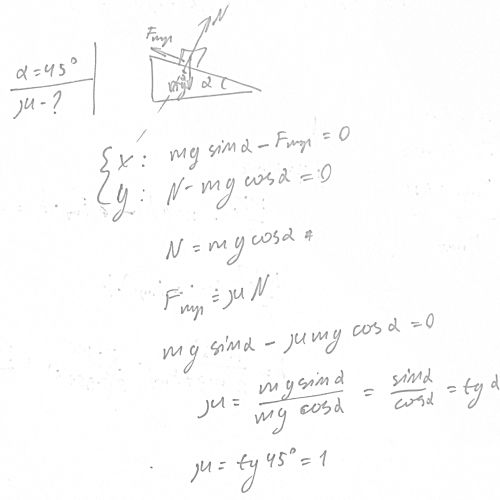 Fтр N
α = 45°
μ - ?
mg α
x: mg sinα - Fтр = 0
y: N - mg cosα = 0
N = mg cosα
Fтр = μN
mg sinα - μmg cosα = 0
μ = mg sinα / mg cosα = sinα / cosα = tg α
μ = tg 45° = 1